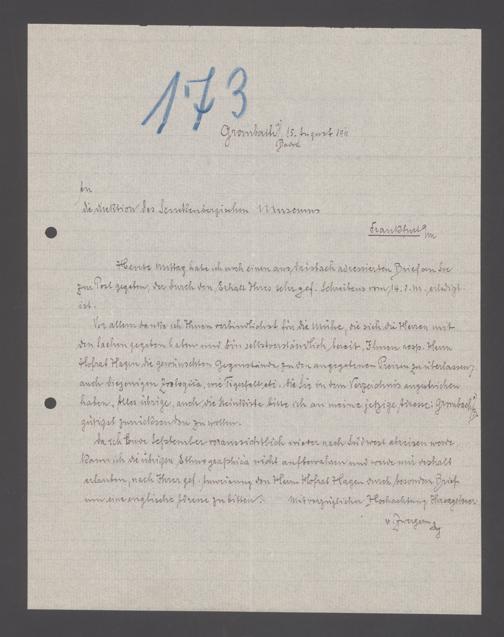 173
Grombach, 15. August 191
Baden
An
die Direktion des Senckenbergischen Museums
Frankfurt a/m
Heute Mittag habe ich noch einen aus, adressierten Brief an Sie
zur Post gegeben, der durch den Erhalt Ihres sehr gef. Schreibens vom 14. d. M. erledigt
ist.
Vor allem danke ich Ihnen verbindlichst für die Mühe, die sich die Herren mit
den Sachen gegeben haben und bin selbstverständlich bereit, Ihnen resp. Herrn
Hofrat Hagen die gewünschten Gegenstände zu den angegebenen Preisen zu überlassen,
auch diejenigen Zoologica, wie die Sie in dem Verzeichnis angestrichen
haben. Alles übrige, auch die bitte ich an meine jetzige Adresse: Grombach
gütigst zurücksenden zu wollen.
Da ich Ende September voraussichtlich wieder nach Südwest abreisen werde,
kann ich die übrigen Ethnographica nicht aufbewahren und werde mir deshalb
erlauben, nach Ihrer gef. Anweisung den Herrn Hofrat Hagen durch besonderen Brief
um eine englische Adresse zu bitten. Mit vorzüglicher Hochachtung Ihr ergebener
v.